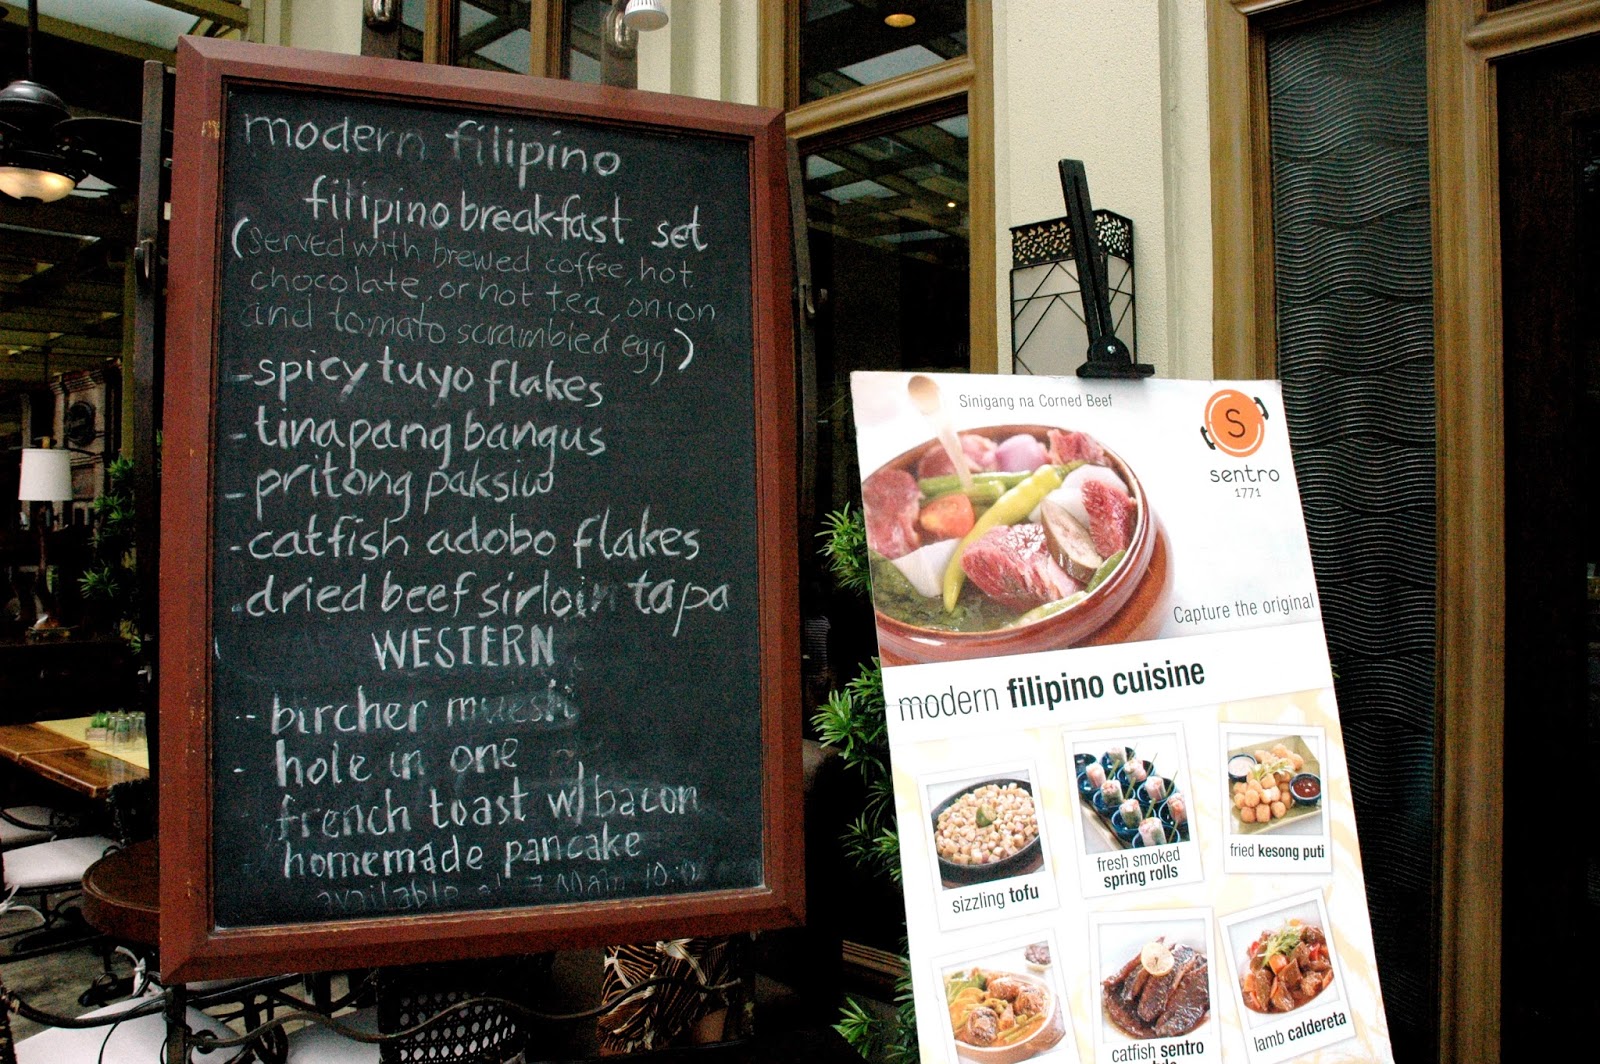 modern filipino
filipino breakfast set
(served with brewed coffee, hot
chocolate, or hot tea, onion
and tomato scrambled egg)
-spicy tuyo flakes
-tinapang bangus
-pritong paksiw
-catfish adobo flakes
-dried beef sirloin tapa
WESTERN
- bircher muesli
- hole in one
french toast w/bacon
homemade pancake
available
Sinigang na Corned Beef
S
sentro
1771
Capture the original
modern filipino cuisine
sizzling tofu
fresh smoked
spring rolls
fried kesong puti
catfish sentro
lamb caldereta